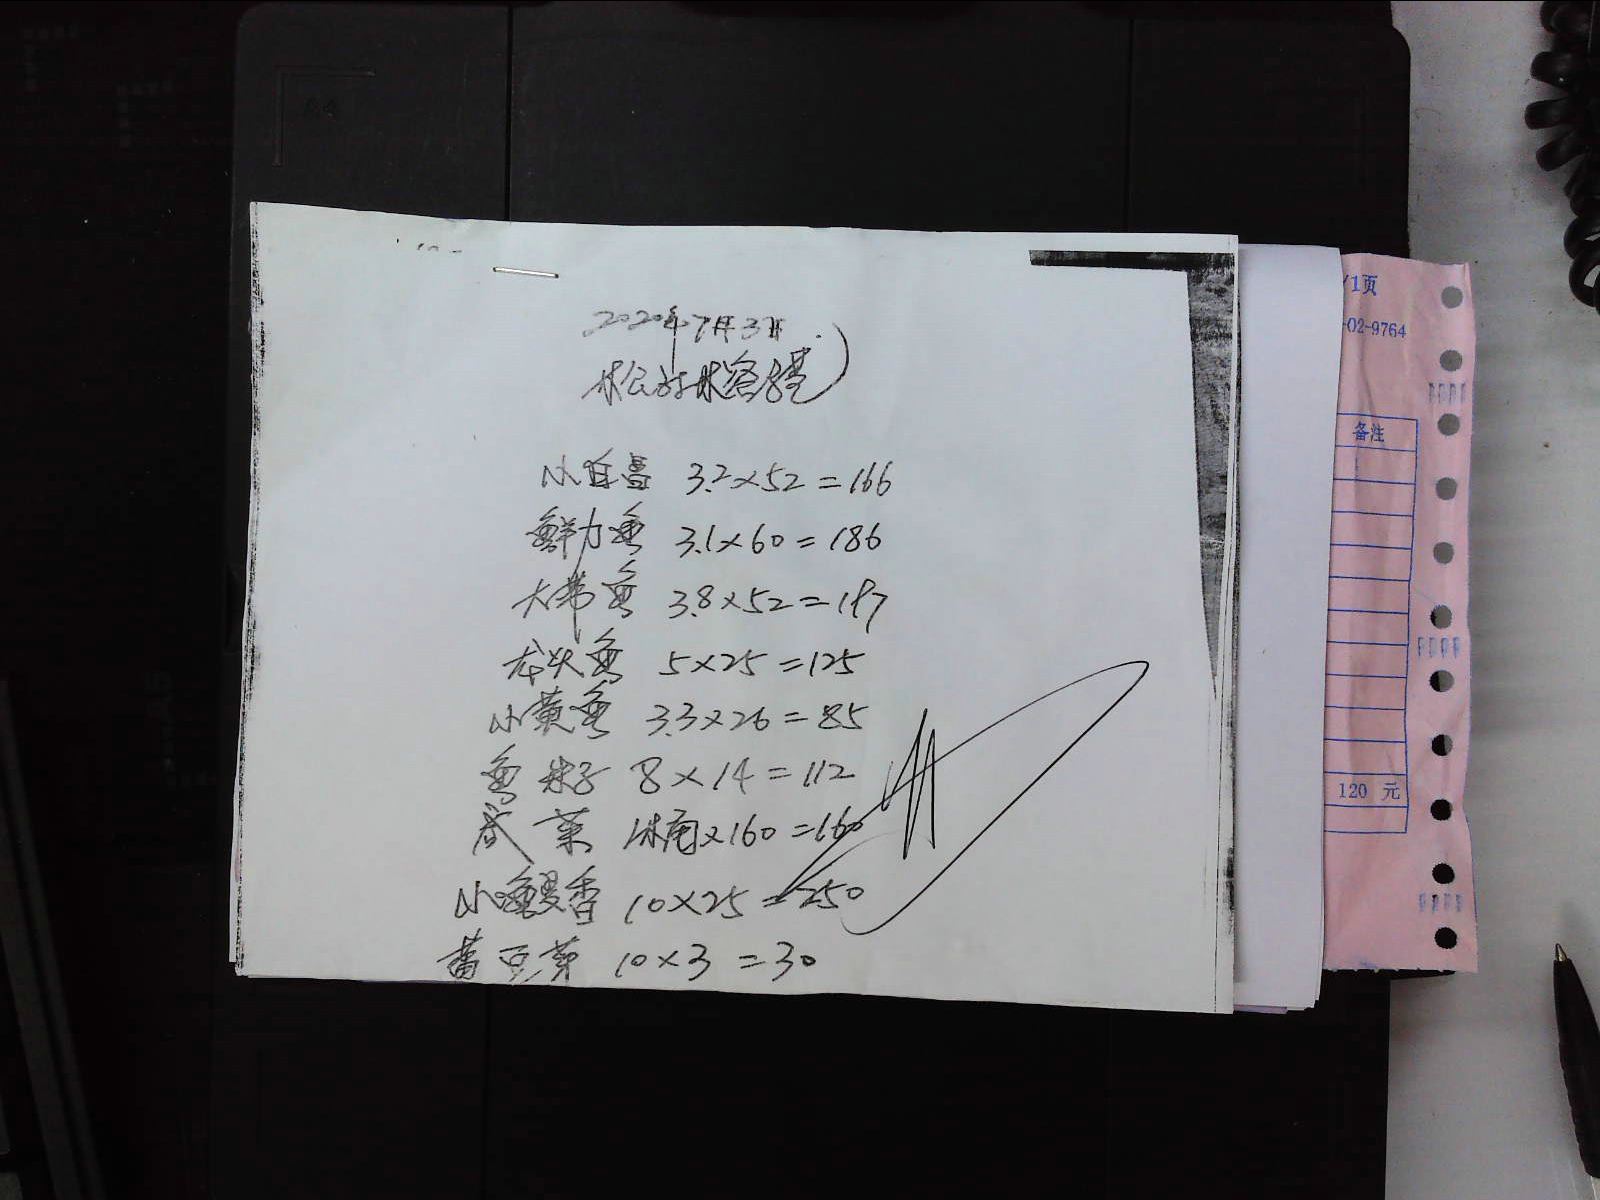 2020年7月3日
小白 3.2×52=166
鲜力鱼 3.1×60=186
大带鱼 3.8×52=197
龙头鱼 5×25=125
小黄鱼 3.3×26=85
鱼 籽 8×14=112
菜 ×160=160
小鳗香 10×25=250
黄豆芽 10×3=30
/1页
-02-9764
备注
120 元